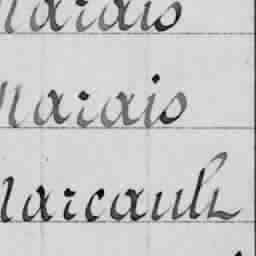 Marais
Marais
Marcault